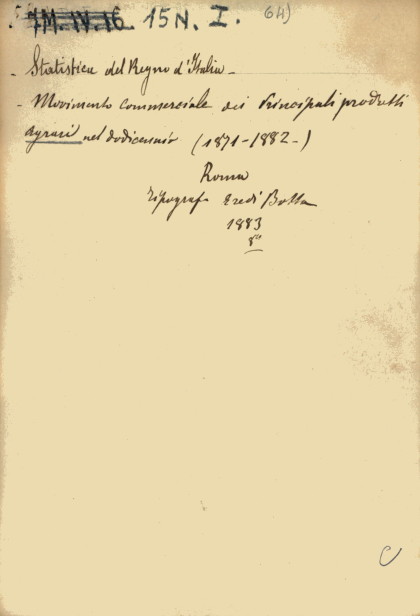 1M.IV.16 15N. I. 64)
- Statistica del Regno d'Italia -
- Movimento commerciale dei Principali prodotti
agrari nel dodicennio (1871-1882-)
Roma
Tipograf. Eredi Botta
1883
8°
C